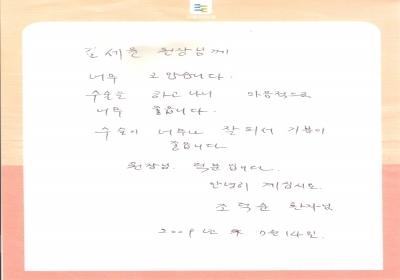 김세윤 원장님께
너무 고맙습니다.
수술을 하고나니 마음적으로
너무 좋습니다.
수술이 너무나 잘되서 기분이
좋읍니다
원장님. 덕분입니다.
안녕히 계십시요.
조덕순 환자님
2009년 월 14일.